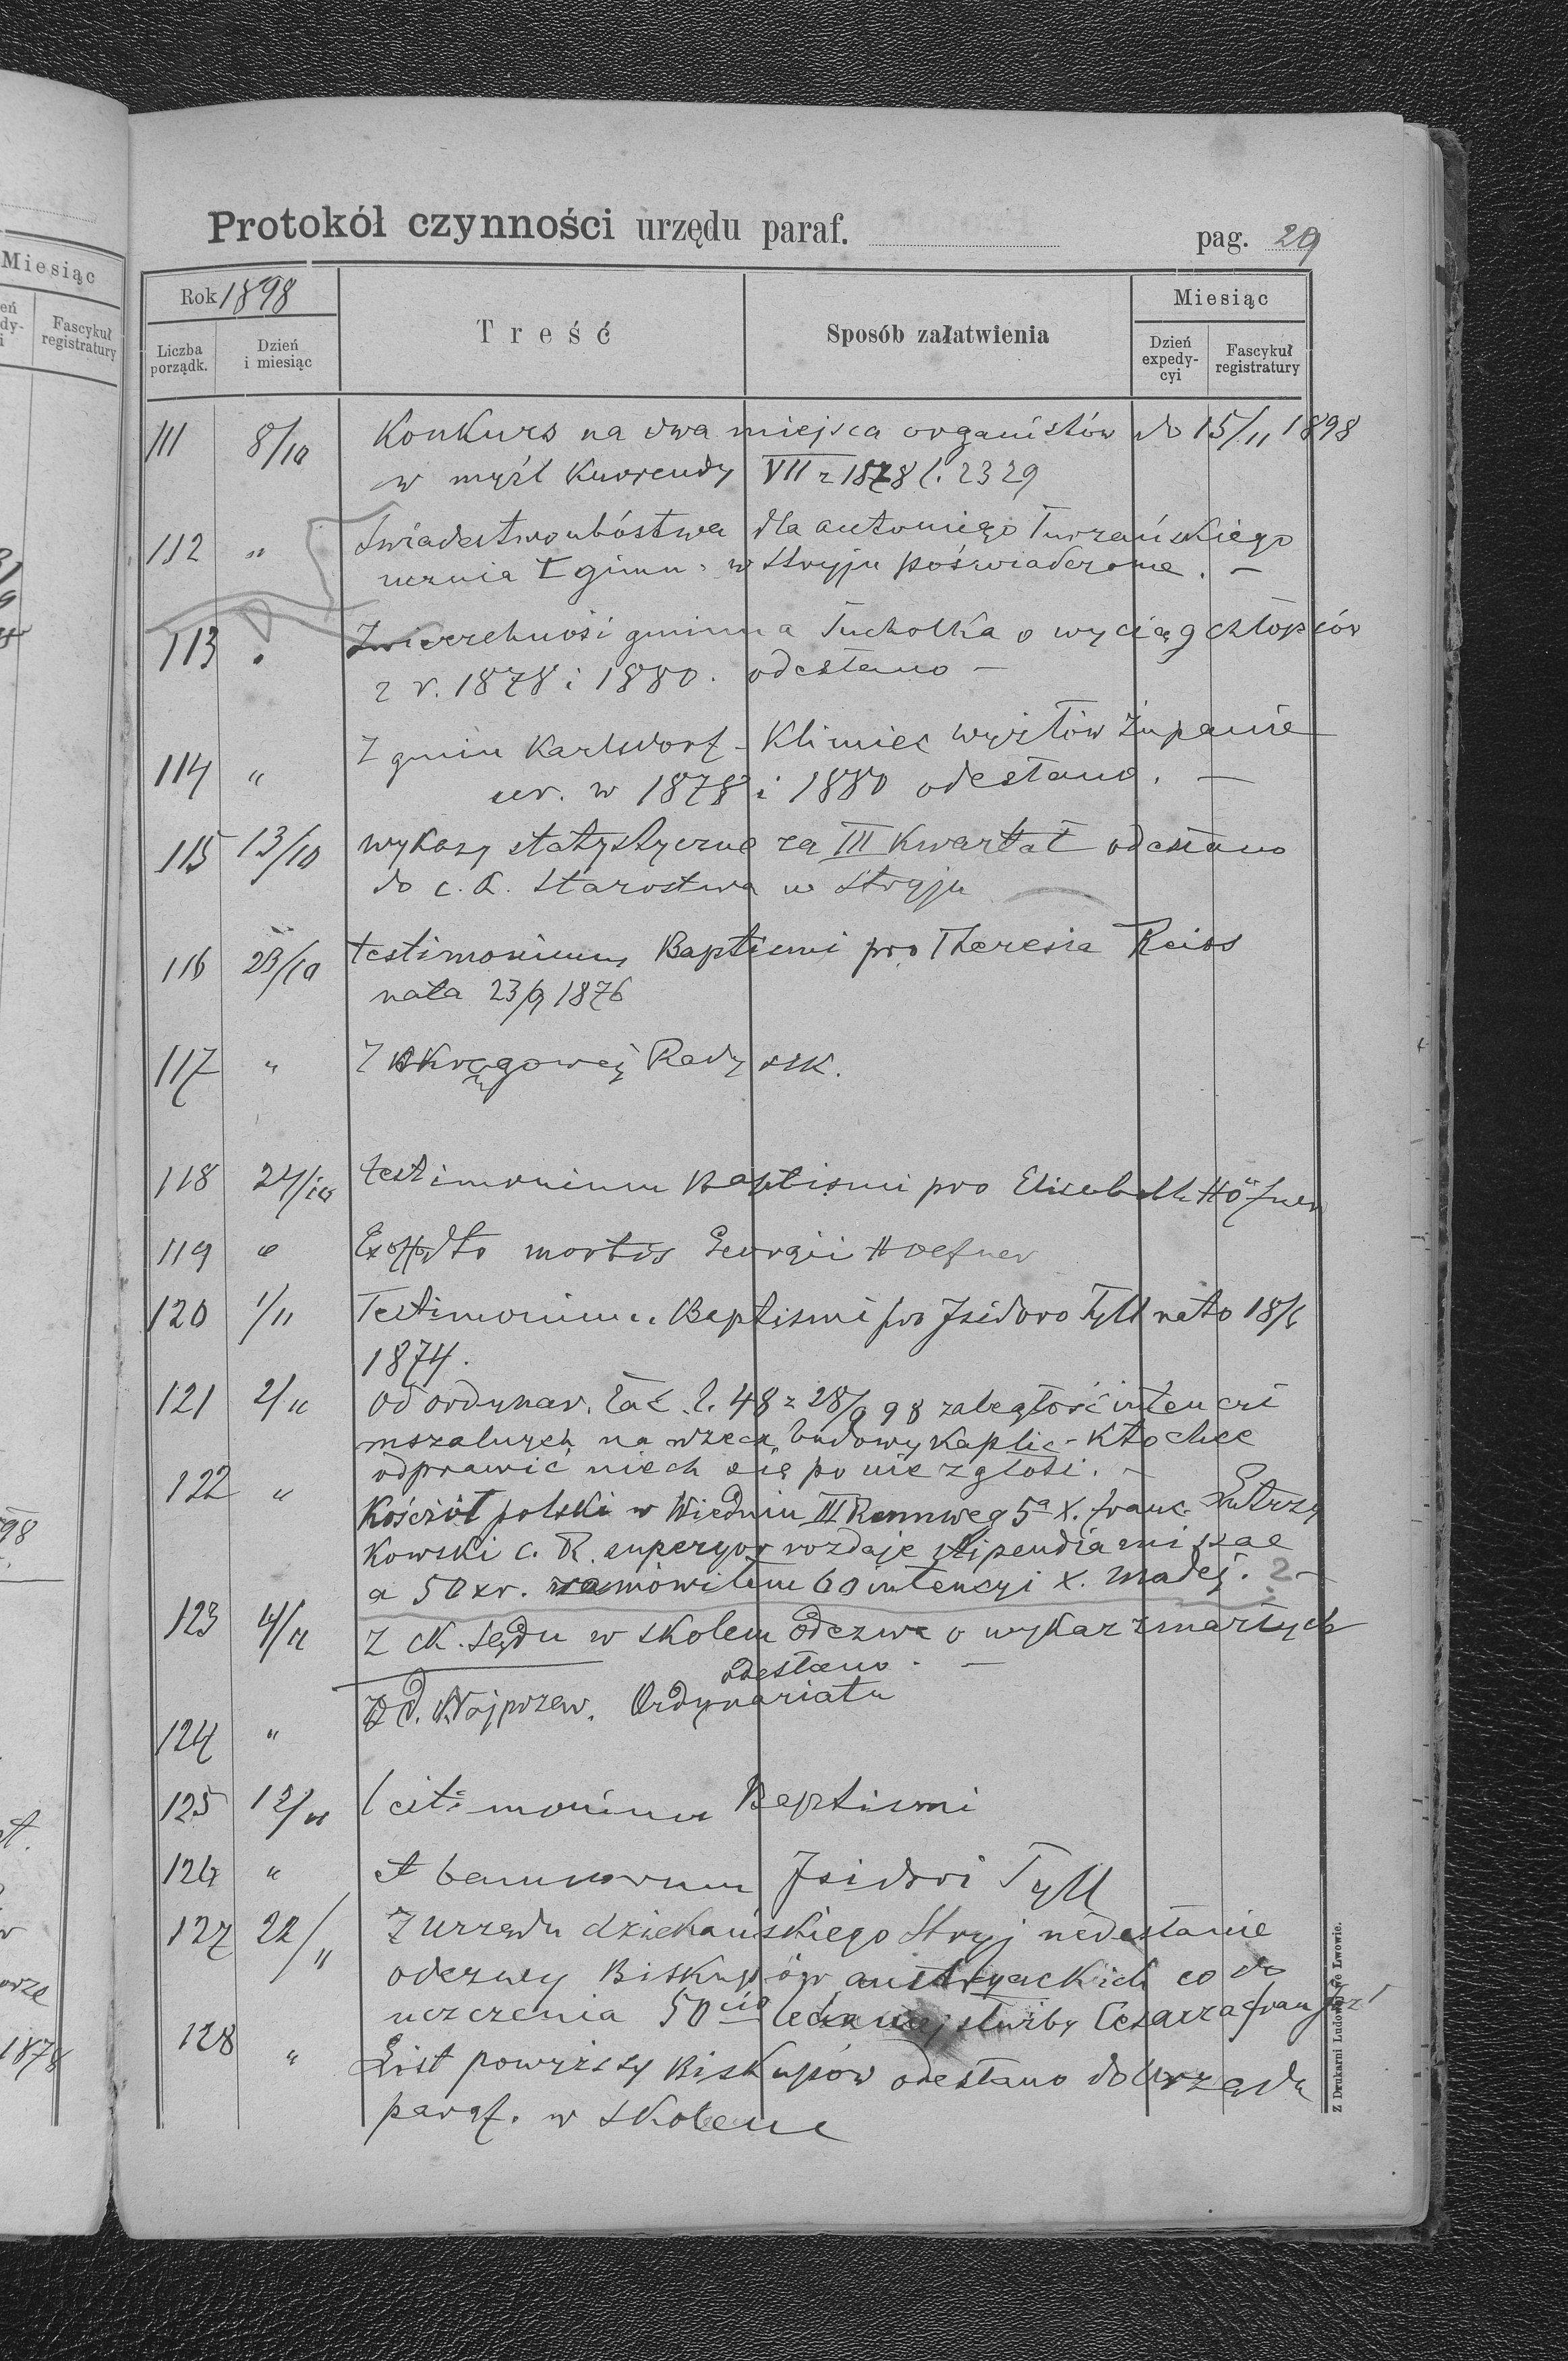 Protokół czynności urzędu paraf. pag. 29
Rok 1898
Treść
Sposób załatwienia
Miesiąc
Liczba porządk.
Dzień i miesiąc
Dzień expedycyi
Fascykuł registratury
111 8/10 Konkurs na dwa miejsca organistów do 15/11 1898
w myśl Kurendy VII z 1878 l. 2329
112 " Świadectwo ubóstwa dla antoniego Turzańskiego
ucznia I gimn. w Stryju poświadczone. —
113 " Zwierzchność gminna Tucholka o wyciąg chłopców
z r. 1878 i 1880. odesłano —
114 " Z gmin Karlsdorf - Klimiec wyżłów Żupanie
ur. w 1878 i 1880 odesłano. —
115 13/10 wykazy statystyczne za III Kwartał odesłano
do c. k. Starostwa w Stryju
116 23/10 testimonium Baptismi pro Theresia Reiss
nata 23/9 1876
117 " Z Okręgowej Rady szk.
118 24/10 testimonium Baptismi pro Elisabeth Höfner
119 " Ex offo dto mortis Georgii Hoefner
120 1/11 Testimonium Baptismi pro Isidoro Tyll nato 18/
1874.
121 2/11 Od ordynar. łać. l. 48 z 28/9 98 zaległość intencri
mszalnych na rzecz budowy Kaplic - Kto chce
odprawić niech się po nie zgłosi. —
122 " Kościół polski w Wiedniu III Rennweg 5a X. franc.
kowski C. R. superyor rozdaje stipendia
a 50 xr. zamówiłem 60 intencyi X. Madej. 2 —
123 4/11 Z ck. Sądu w Skolem odezwa o wykaz zmarłych
odesłano. —
124 " Od. Najprzew. Ordynariatu
125 12/11 testimonium Baptismi
126 " et bannorum Isidori Tyll
127 22/11 Z urzędu dziekańskiego Stryj nadesłanie
odezwy Biskupów austryackich co do
uczczenia 50cio letniej służby Cesarza
128 " List powyższy Biskupów odesłano do Urzędu
paraf. w Skolem
Z Drukarni Ludowej we Lwowie.
Miesiąc
Fascykuł registratury
98
1878